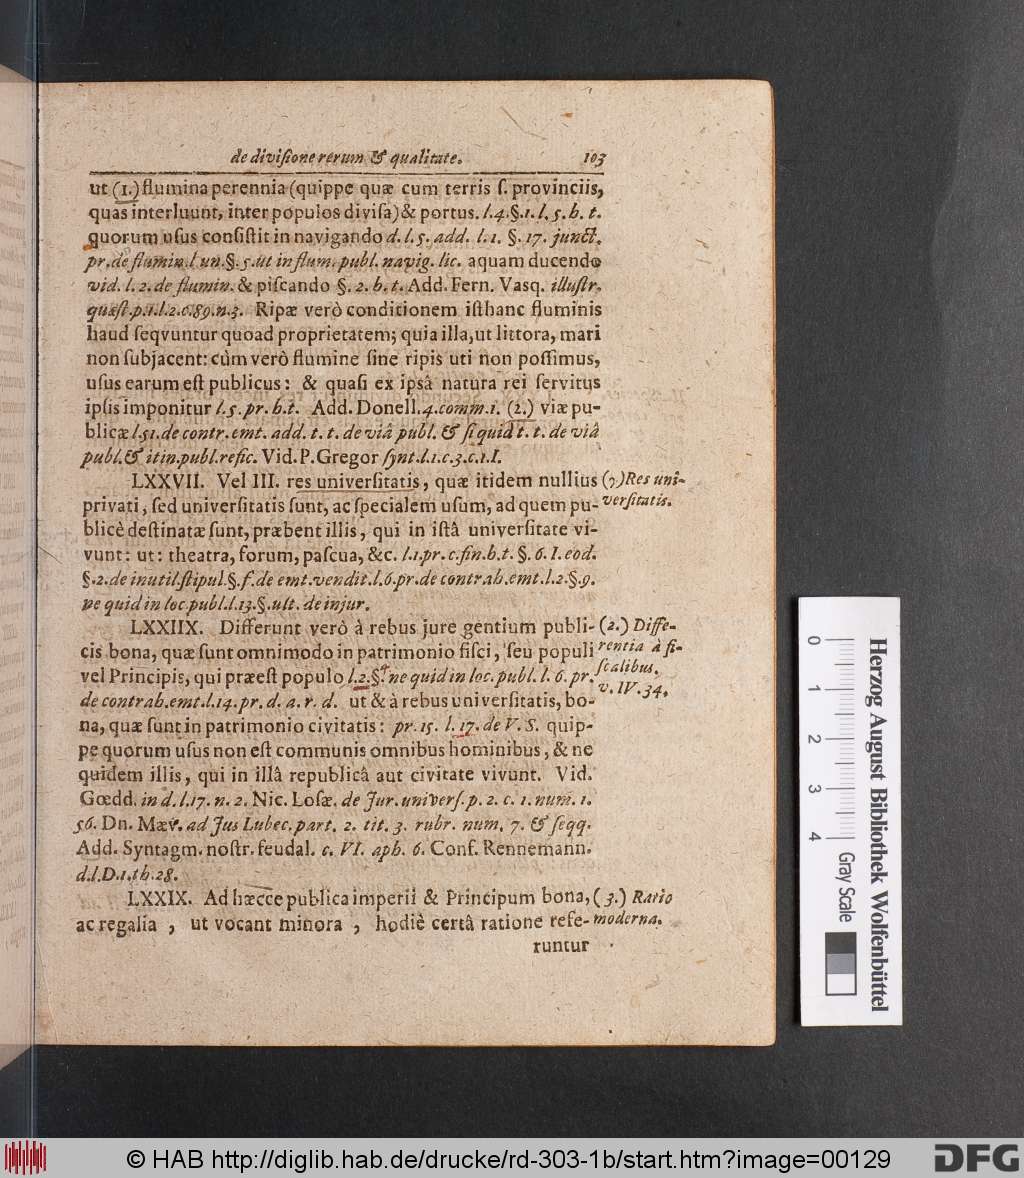 de diviſione rerum & qualitate. 103
ut (1.) flumina perennia (quippe quæ cum terris ſ. provinciis,
quas interluunt, inter populos diviſa) & portus. l. 4. §. 1. l. 5. h. t.
quorum uſus conſiſtit in navigando d. l. 5. add. l. 1. §. 17. junct.
pr. de flumin. l un. §. 5. ut in flum. publ. navig. lic. aquam ducendo
vid. l. 2. de flumin. & piſcando §. 2. h. t. Add. Fern. Vasq. illuſtr.
quæſt. p. 1. l. 2. c. 89. n. 3. Ripæ verò conditionem iſthanc fluminis
haud ſeqvuntur quoad proprietatem; quia illa, ut littora, mari
non ſubjacent: cùm verò flumine ſine ripis uti non poſſimus,
uſus earum eſt publicus: & quaſi ex ipsâ natura rei ſervitus
ipſis imponitur l. 5. pr. h. t. Add. Donell. 4. comm. 1. (2.) viæ pu-
blicæ l. 51. de contr. emt. add. t. t. de viâ publ. & ſi quid t. t. de viâ
publ. & itin. publ. refic. Vid. P. Gregor ſynt. l. 1. c. 3. c. 1. I.
LXXVII. Vel III. res univerſitatis, quæ itidem nullius
privati, ſed univerſitatis ſunt, ac ſpecialem uſum, ad quem pu-
blicè deſtinatæ ſunt, præbent illis, qui in iſtâ univerſitate vi-
vunt: ut: theatra, forum, paſcua, &c. l. 1. pr. c. fin. h. t. §. 6. I. eod.
§. 2. de inutil. ſtipul. §. f. de emt. vendit. l. 6. pr. de contrah. emt. l. 2. §. 9.
ne quid in loc. publ. l. 13. §. ult. de injur.
(7.) Res uni-
verſitatis.
LXXIIX. Differunt verò à rebus jure gentium publi-
cis bona, quæ ſunt omnimodo in patrimonio fiſci, ſeu populi
vel Principis, qui præeſt populo l. 2. §. 4. ne quid in loc. publ. l. 6. pr.
de contrah. emt. l. 14. pr. d. a. r. d. ut & à rebus univerſitatis, bo-
na, quæ ſunt in patrimonio civitatis: pr. 15. l. 17. de V. S. quip-
pe quorum uſus non eſt communis omnibus hominibus, & ne
quidem illis, qui in illâ republicâ aut civitate vivunt. Vid.
Gœdd. in d. l. 17. n. 2. Nic. Loſæ. de Jur. univerſ. p. 2. c. 1. num. 1.
56. Dn. Mæv. ad Jus Lubec. part. 2. tit. 3. rubr. num. 7. & ſeqq.
Add. Syntagm. noſtr. feudal. c. VI. aph. 6. Conf. Rennemann.
d. l. D. 1. th. 28.
(2.) Diffe-
rentia à fi-
ſcalibus.
v. IV. 34.
LXXIX. Ad hæcce publica imperii & Principum bona,
ac regalia, ut vocant minora, hodiè certâ ratione refe-
runtur
(3.) Ratio
moderna.
0
1
2
3
4
Gray Scale
Herzog August Bibliothek Wolfenbüttel
© HAB http://diglib.hab.de/drucke/rd-303-1b/start.htm?image=00129
DFG